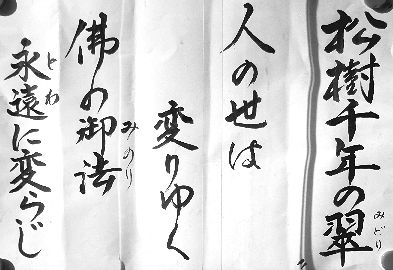 松樹千年の翠
みどり
人の世は
変りゆく
佛の御法
みのり
永遠に変らじ
とわ